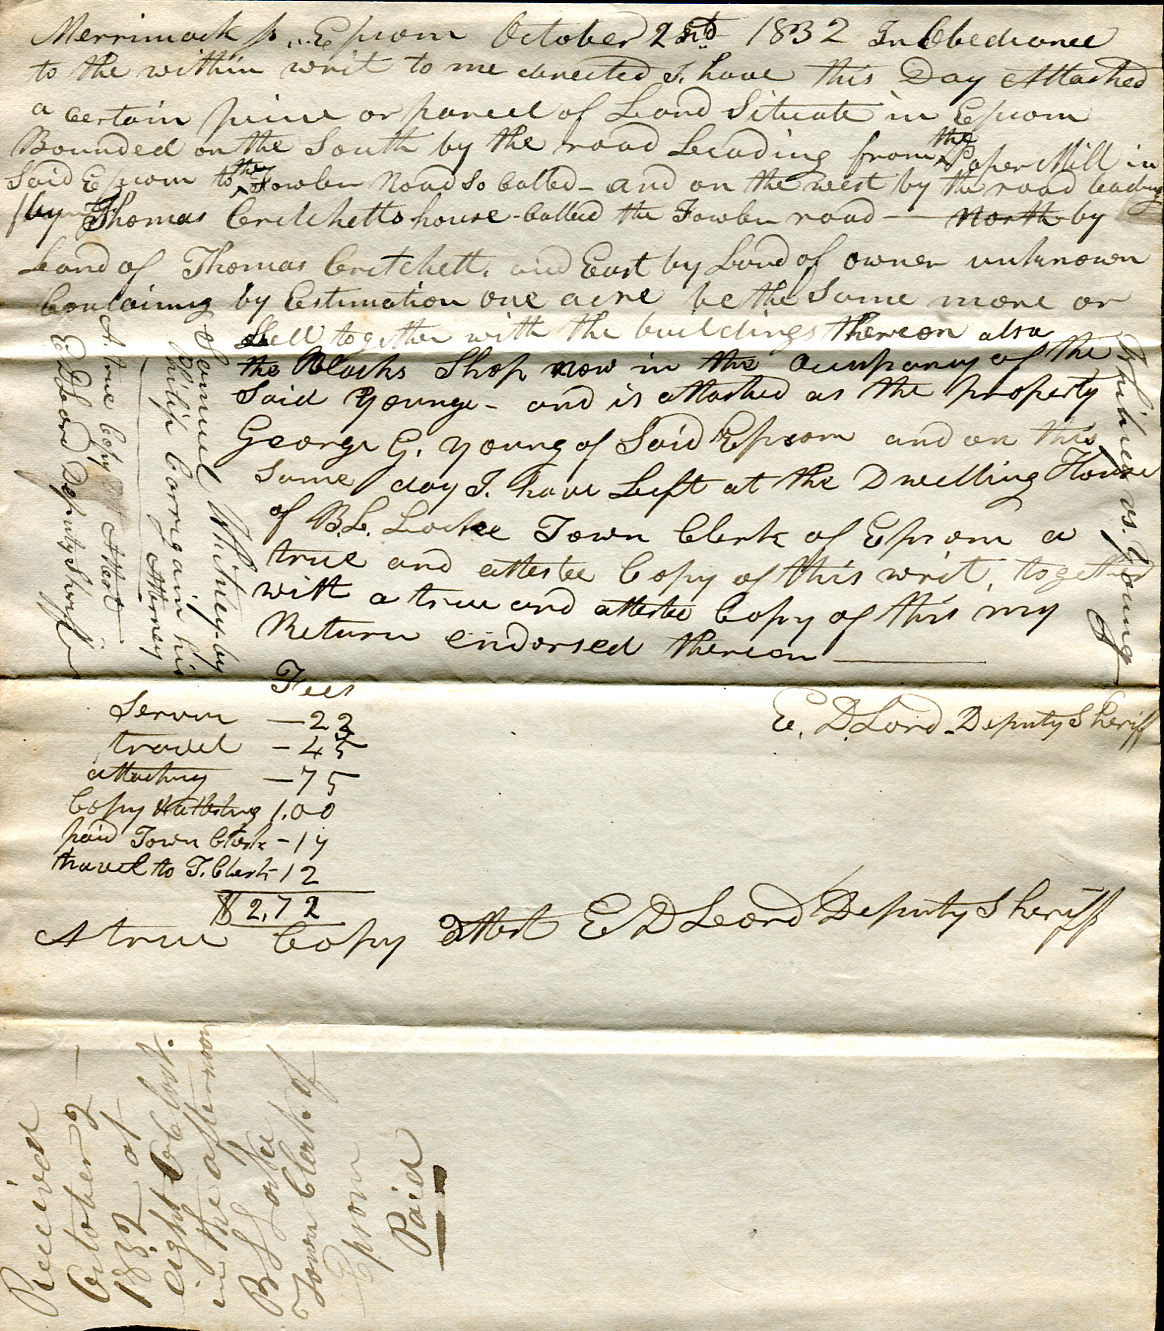 Merrimack ss. Epsom October 2nd 1832 In Obedience
to the within writ to me directed I have this Day Attached
a certain piece or parcel of Land Situate in Epsom
Bounded on the South by the road Leading from the Paper Mill in
Said Epsom to the Fowler Road So Called - and on the west by the road leading
by Thomas Critchetts house - Called the Fowler road - North by
Land of Thomas Critchett, and East by Land of owner unknown
Containing by Estimation one acre be the Same more or
less together with the buildings thereon also
the Blacks Shop now in the Occupancy of the
Said Young - and is attached as the property
George G. Young of Said Epsom and on this
same day I have Left at the Dwelling House
of B.L. Locke Town Clerk of Epsom a
true and attestee Copy of this writ, together
with a true and attestee Copy of this my
Return endorsed thereon
E. D. Lord - Deputy Sheriff
Fees
Servin - 23
travel - 45
attaching - 75
Copy & attesting 1.00
paid Town Clerk - 17
travel to T. Clerk - 12
$ 2,72
A true Copy Attest E D Lord Deputy Sheriff
Samuel Whitney by
Philip Corrigain his
Attorney
A true Copy Attest
E D Lord Deputy Sheriff
Whitney vs. Young
Received
October 2 -
1832 at
eight O Clock.
in the afternoon
B L Locke
Town Clerk of
Epsom
Paid